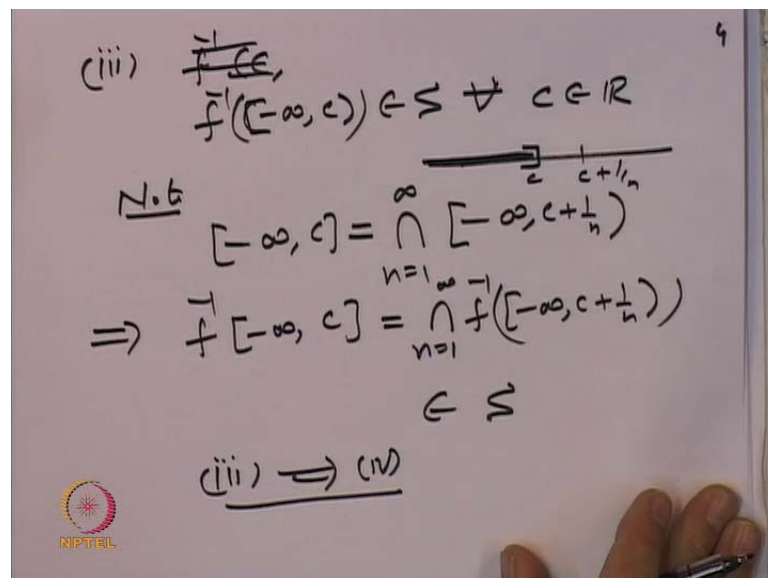 4
(iii) f⁻¹ [c,
f⁻¹([-∞, c)) ∈ S ∀ c ∈ ℝ
c c+1/n
Note
[-∞, c] = ∩_{n=1}^{∞} [-∞, c+1/n)
⟹ f⁻¹[-∞, c] = ∩_{n=1}^{∞} f⁻¹([-∞, c+1/n))
∈ S
(iii) ⟹ (iv)
NPTEL